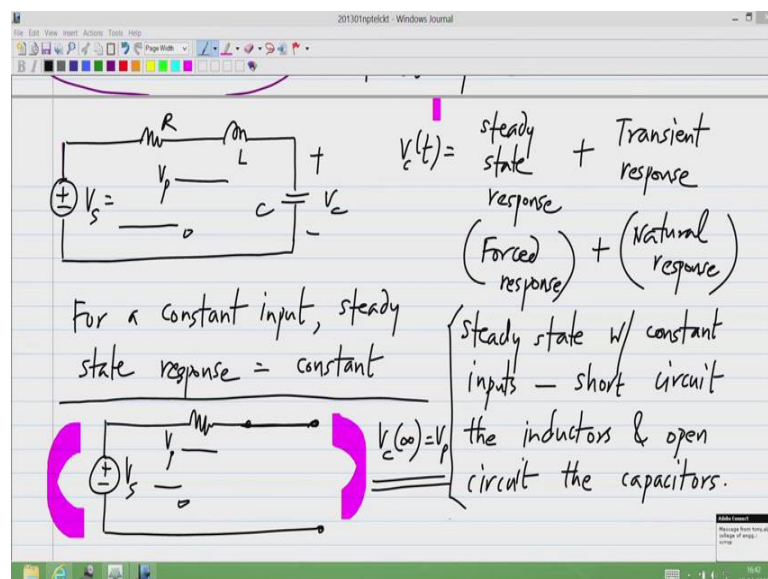 201301nptelckt - Windows Journal
File Edit View Insert Actions Tools Help
Page Width
B I
R
L
V_p
V_s =
0
C
+
V_c
-
V_c(t) = steady state response + Transient response
(Forced response) + (Natural response)
For a constant input, steady
state response = constant
steady state w/ constant
inputs - short circuit
the inductors & open
circuit the capacitors.
V_p
V_s
0
V_c(∞) = V_p
Adobe Connect
16:42